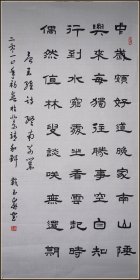 中歲頗好道晚家南山陲
興來每獨往勝事空自知
行到水窮處坐看雲起時
偶然值林叟談咲無還期
唐王維詩終南別業
二零一四年初春於北京